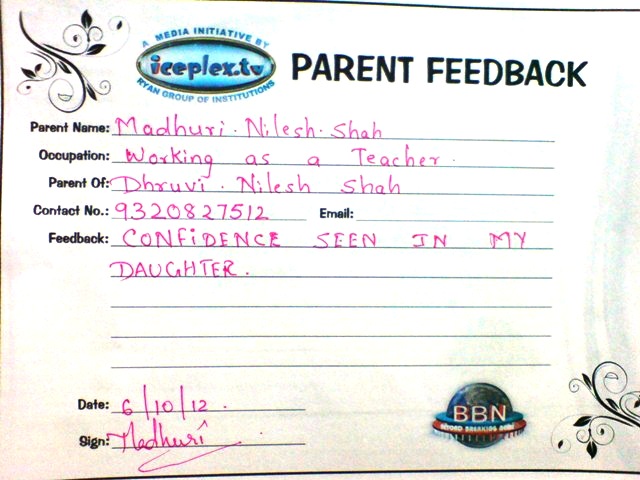 A MEDIA INITIATIVE BY
iceplex.tv
RYAN GROUP OF INSTITUTIONS
PARENT FEEDBACK
Parent Name: Madhuri. Nilesh. Shah
Occupation: Working as a Teacher.
Parent Of: Dhruvi. Nilesh Shah
Contact No.: 9320827512 Email:
Feedback: CONFIDENCE SEEN IN MY
DAUGHTER.
Date: 6/10/12.
BBN
BEYOND BREAKING NEWS
Sign: Madhuri